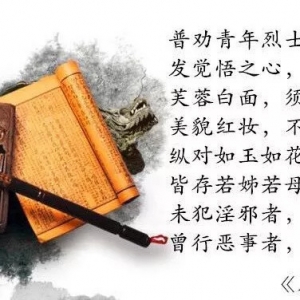 普劝青年烈士
发觉悟之心，
芙蓉白面，须
美貌红妆，不
纵对如玉如花
皆存若姊若母
未犯淫邪者，
曾行恶事者，
《